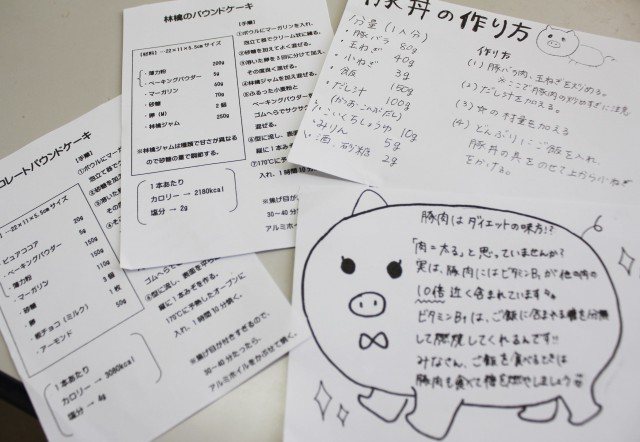 林檎のパウンドケーキ
【材料】 ―22×11×5.5cmサイズ
・薄力粉 200g
・ベーキングパウダー 5g
・マーガリン 50g
・砂糖 70g
・卵（M） 2個
・林檎ジャム 250g
※林檎ジャムは種類で甘さが異なる
ので砂糖の量で調節する。
1本あたり
カロリー → 2180kcal
塩分 → 2g
【手順】
①ボウルにマーガリンを入れ、
泡立て器でクリーム状に練る。
②砂糖を加えてよく混ぜる。
③溶いた卵を3回に分けて加え、
その都度良く混ぜる。
④林檎ジャムを加え混ぜる。
⑤ふるった小麦粉と
ベーキングパウダーを
ゴムヘラでサクサク
混ぜる。
⑥型に流し、表面
縦に1本
⑦170℃に予
入れ、1時間10
※焦げ目が
30～40分
アルミホイル
豚丼の作り方
分量（1人分）
・豚バラ 80g
・玉ねぎ 40g
・小ねぎ 3g
・飯 150g
・だし汁 100g
（かつお・こんぶだし）
・こいくちしょうゆ 10g
・みりん 5g
・酒、砂糖 2g
作り方
(1) 豚バラ肉、玉ねぎを炒める。
(2) だし汁を加える。
(3) ☆の材料を加える
(4) どんぶりにご飯を入れ、
豚丼の具をのせて上から小ねぎ
をかける。
コレートパウンドケーキ
―22×11×5.5cmサイズ
ピュアココア 20g
・ベーキングパウダー 5g
・薄力粉 150g
・マーガリン 110g
・砂糖
・卵 3個
・板チョコ（ミルク） 1枚
・アーモンド 50g
1本あたり
カロリー → 3080kcal
塩分 → 4g
【手順】
①ボウルにマーガリン
泡立て器で
②砂糖を加え
③溶いた卵
ゴムヘラで
⑥型に流し、表面を
縦に1本みぞを作る。
170℃に予熱したオーブンに
入れ、1時間10分焼く。
※焦げ目が付きすぎるので、
30～40分たったら、
アルミホイルをかぶせて焼く。
豚肉はダイエットの味方!?
「肉＝太る」と思っていませんか？
実は、豚肉にはビタミンB₁が他の肉の
10倍近く含まれています
ビタミンB₁は、ご飯に含まれる糖を分解
して燃焼してくれるんです!!
みなさん、ご飯を食べるときは
豚肉も食べて糖を燃やしましょう